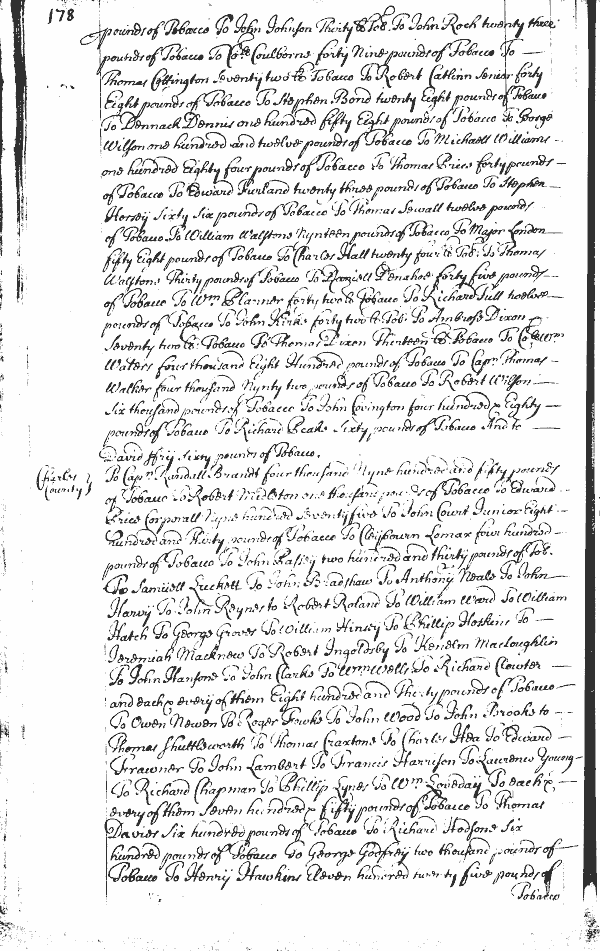 178
pounds of Tobacco To John Johnson Thirty lb Tob: To John Rock twenty three
pounds of Tobacco To Coll Coulborne forty Nine pounds of Tobacco To
Thomas Cottington seventy two lb Tobacco To Robert Catlinn Senior forty
Eight pounds of Tobacco To Stephen Bond twenty Eight pounds of Tobacco
To Dennack Dennis one hundred fifty Eight pounds of Tobacco To George
Wilson one hundred and twelve pounds of Tobacco To Michaell Williams
one hundred Eighty four pounds of Tobacco To Thomas Price forty pounds
of Tobacco To Edward Furland twenty three pounds of Tobacco To Stephen
Horsey Sixty Six pounds of Tobacco To Thomas Sewall twelve pounds
of Tobacco To William Walstone Nynteen pounds of Tobacco To Major London
fifty Eight pounds of Tobacco To Charles Hall twenty four lb Tob: To Thomas
Walstone Thirty pounds of Tobacco To Daniell Denahoe forty five pounds
of Tobacco To Wm Planner forty two lb Tobacco To Richard Tull twelve
pounds of Tobacco To John Kirke forty two lb Tob: To Ambrose Dixon
Seventy two lb: Tobacco To Thomas Dixon Thirteen lb Tobacco To Coll Wm
Waters four thousand Eight Hundred pounds of Tobacco To Capn Thomas
Walker four thousand Nynty two pounds of Tobacco To Robert Wilson
Six thousand pounds of Tobacco To John Covington four hundred & Eighty
pounds of Tobacco To Richard Peake Sixty pounds of Tobacco And to
David ffry Sixty pounds of Tobacco.
Charles County } To Capn Randall Brandt four thousand Nyne hundred and fifty pounds
of Tobacco To Robert Midleton one thousand pounds of Tobacco To Edward
Price Corporall Nyne hundred seventy five To John Court Junior Eight
hundred and Thirty pounds of Tobacco To Cleybourn Lomax four hundred
pounds of Tobacco To John two hundred and thirty pounds of Tob:
To Samuell Luckett To John Bradshaw To Anthony Neale To John
Harvy To John Reynes to Robert Roland To William Ward To William
Hatch To George Groves To William Hinsey To Phillip Hoskins To
Jeremiah Macknew To Robert Ingoldsby To Kenelm Macloughlin
To John Hansone To John Clarke To Wm Wells To Richard Clouter
and each & every of them Eight hundred and Thirty pounds of Tobacco
To Owen Newen To Roger Fowke To John Wood To John Brooks to
Thomas Shuttleworth To Thomas Craxtone To Charles Hea To Edward
Frawner To John Lambert To Francis Harryson To Laurence Young
To Richard Chapman To Phillip Lynes To Wm Loveday To each &
every of them Seven hundred & fifty pounds of Tobacco To Thomas
Davies Six hundred pounds of Tobacco To Richard Hodsone Six
hundred pounds of Tobacco To George Godfrey two thousand pounds of
Tobacco To Henry Hawkins Eleven hundred twenty five pounds of
Tobacco